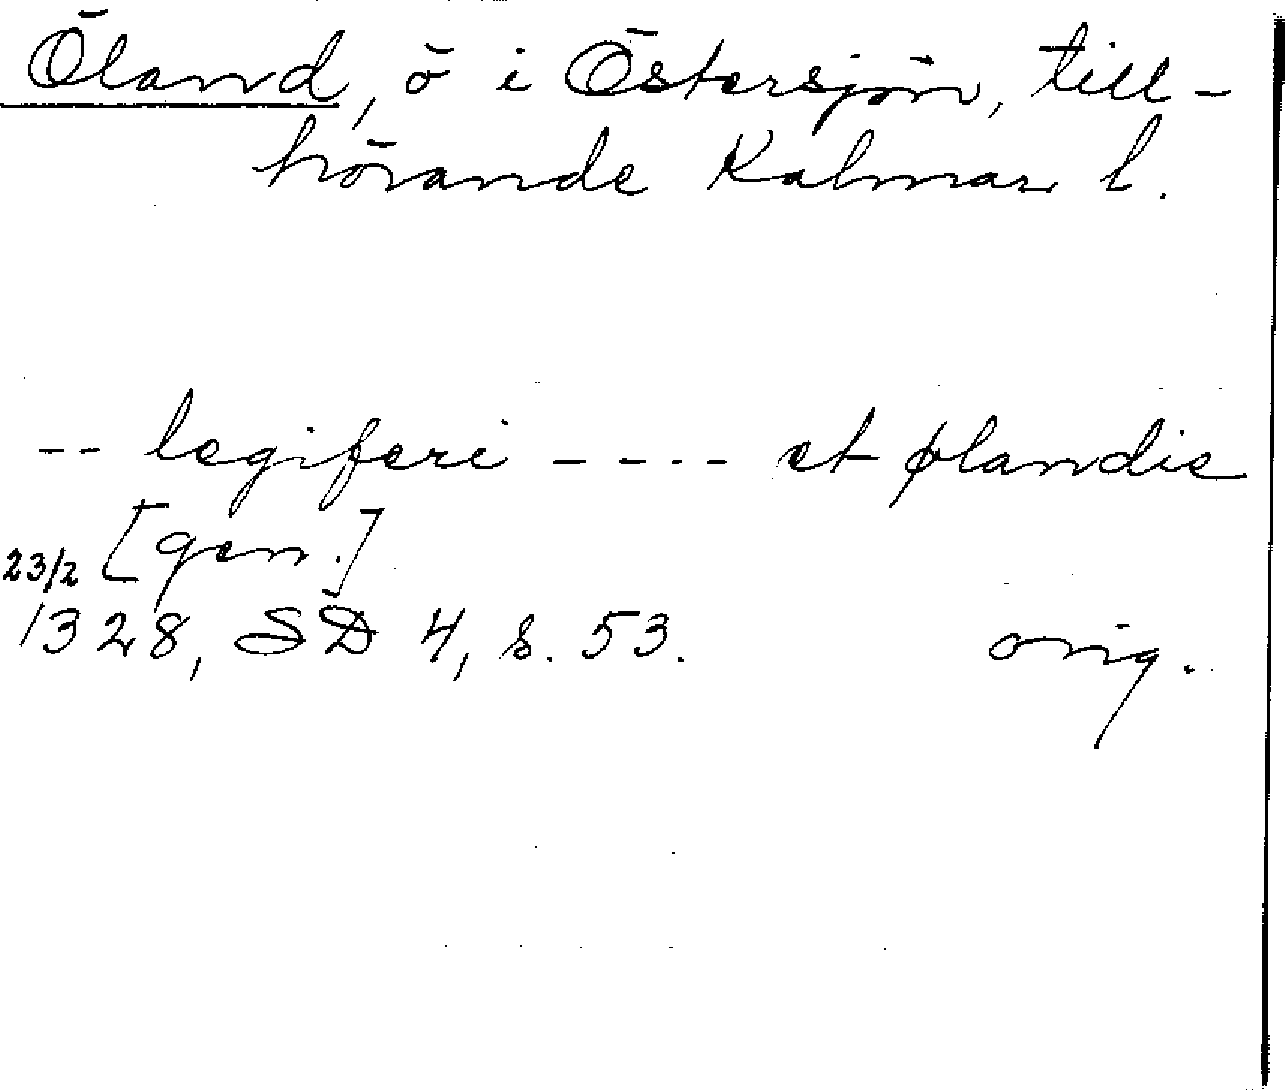 Öland, ö i Östersjön, till-
hörande Kalmar l.
-- legiferi ---- et ølandie
[gen.]
23/2
1328, SD 4, s. 53. orig.